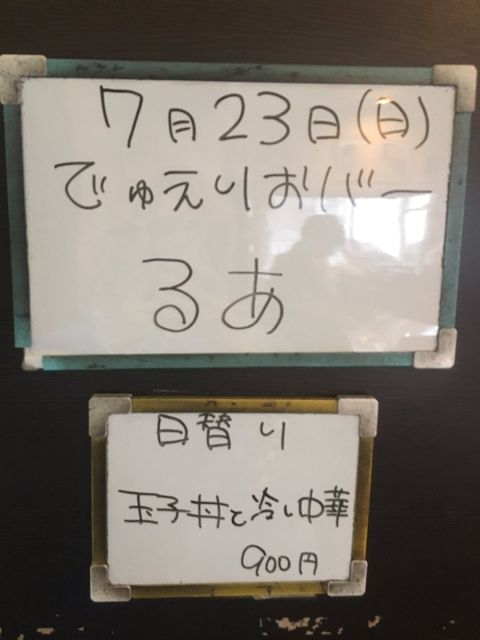 7月23日(日)
でゅえりおバー
るあ
日替り
玉子丼と冷し中華
900円